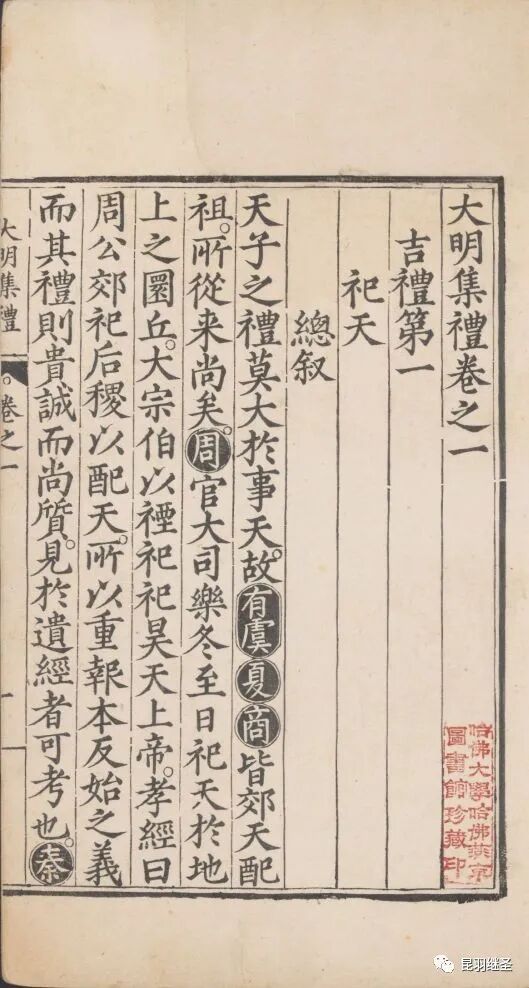 大明集禮卷之一
吉禮第一
祀天
總叙
天子之禮莫大於事天。故有虞夏商皆郊天配
祖。所從来尚矣。周官大司樂冬至日祀天於地
上之圜丘。大宗伯以禋祀祀昊天上帝。孝經曰
周公郊祀后稷以配天。所以重報本反始之義
而其禮則貴誠而尚質。見於遺經者可考也。秦
大明集禮 卷之一 一
哈佛大學哈佛燕京
圖書館珍藏印
昆羽继圣